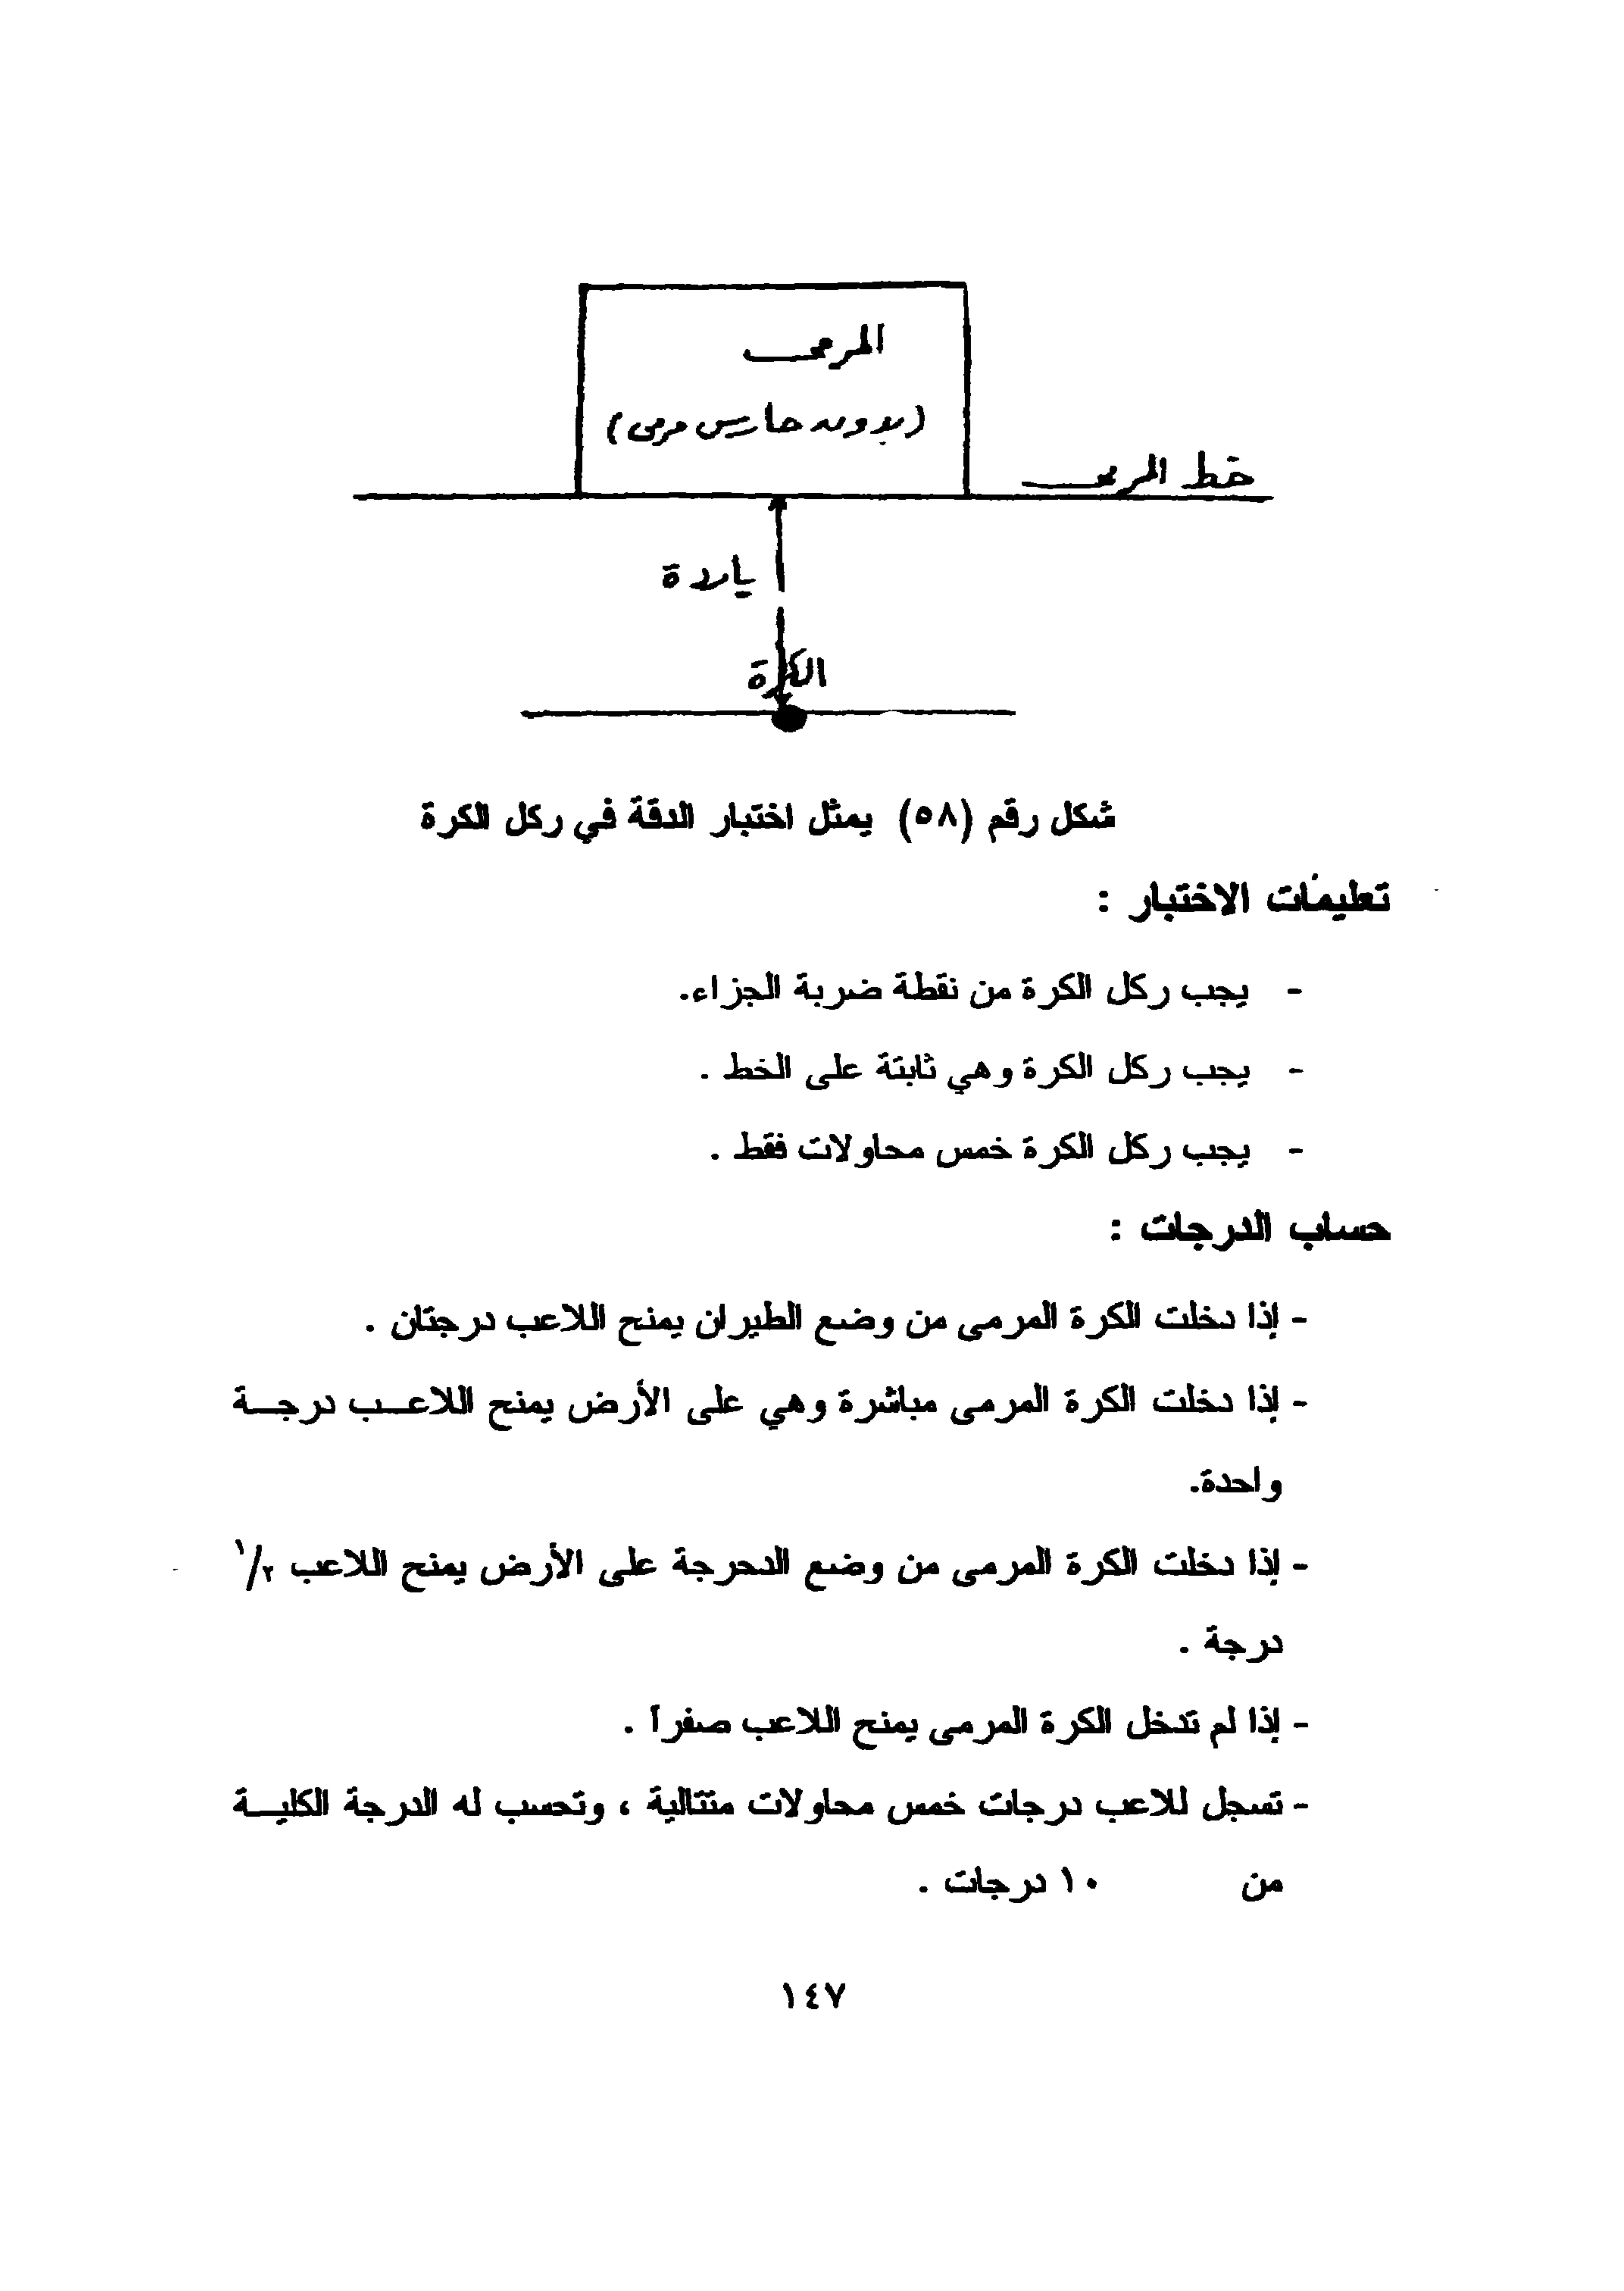 المرمى
(بدون حارس مرمى)
خط المرمى
ياردة
الكرة
شكل رقم (٥٨) يمثل اختبار الدقة في ركل الكرة
تعليمات الاختبار :
- يجب ركل الكرة من نقطة ضربة الجزاء.
- يجب ركل الكرة وهي ثابتة على الخط .
- يجب ركل الكرة خمس محاولات فقط .
حساب الدرجات :
- إذا دخلت الكرة المرمى من وضع الطيران يمنح اللاعب درجتان .
- إذا دخلت الكرة المرمى مباشرة وهي على الأرض يمنح اللاعـب درجـة
واحدة.
- إذا دخلت الكرة المرمى من وضع الدحرجة على الأرض يمنح اللاعب ١/٢
درجة .
- إذا لم تدخل الكرة المرمى يمنح اللاعب صفراً .
- تسجل للاعب درجات خمس محاولات متتالية ، وتحسب له الدرجة الكليـة
من ١٠ درجات .
١٤٧